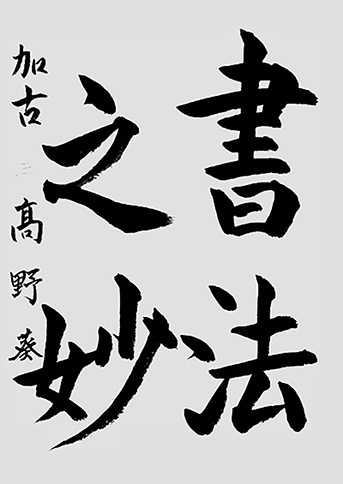 書法
之妙
加古 二 髙野葵